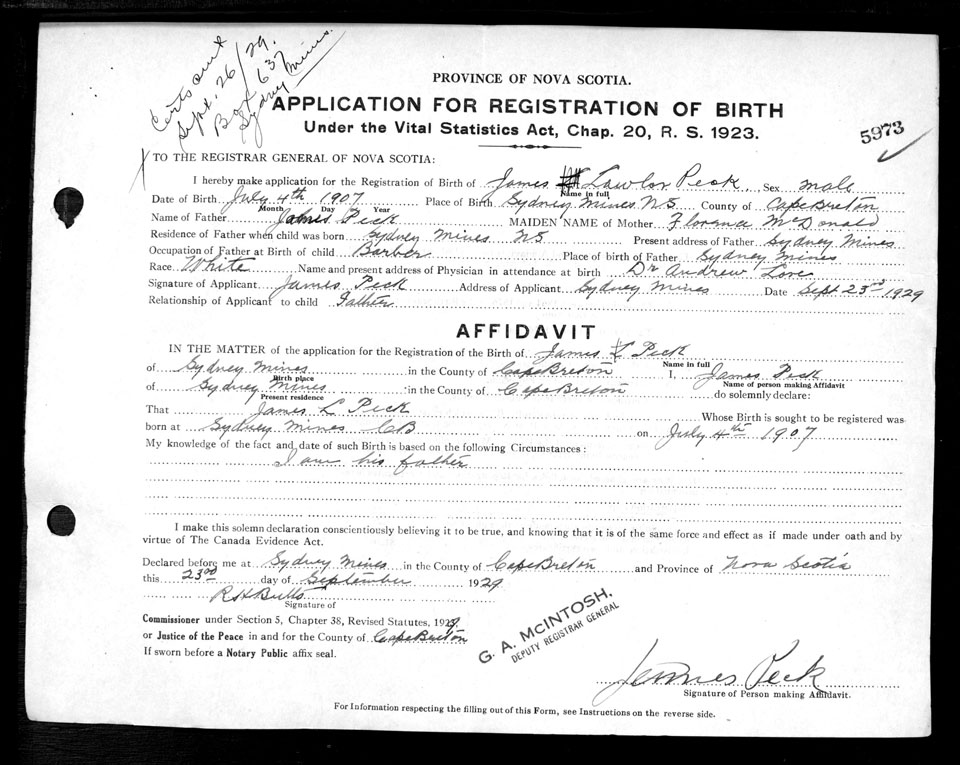 Certs sent
Sept. 26/29.
Box 637
Sydney Mines.
PROVINCE OF NOVA SCOTIA.
APPLICATION FOR REGISTRATION OF BIRTH
Under the Vital Statistics Act, Chap. 20, R. S. 1923.
5973
TO THE REGISTRAR GENERAL OF NOVA SCOTIA:
I hereby make application for the Registration of Birth of James Lawlor Peck Sex male
Name in full
Date of Birth July 4th 1907 Place of Birth Sydney Mines NS County of Cape Breton
Month Day Year
Name of Father James Peck MAIDEN NAME of Mother Florence McDonald
Residence of Father when child was born Sydney Mines NS Present address of Father Sydney Mines
Occupation of Father at Birth of child Barber Place of birth of Father Sydney Mines
Race White Name and present address of Physician in attendance at birth Dr Andrew Love
Signature of Applicant James Peck Address of Applicant Sydney Mines Date Sept 23rd 1929
Relationship of Applicant to child Father
AFFIDAVIT
IN THE MATTER of the application for the Registration of the Birth of James L Peck
Name in full
of Sydney Mines in the County of Cape Breton I, James Peck
Birth place Name of person making Affidavit
of Sydney Mines in the County of Cape Breton do solemnly declare:
Present residence
That James L Peck Whose Birth is sought to be registered was
born at Sydney Mines CB on July 4th 1907
My knowledge of the fact and date of such Birth is based on the following Circumstances:
I am his father
I make this solemn declaration conscientiously believing it to be true, and knowing that it is of the same force and effect as if made under oath and by
virtue of The Canada Evidence Act.
Declared before me at Sydney Mines in the County of Cape Breton and Province of Nova Scotia
this 23rd day of September 1929
R H Butts
Signature of
Commissioner under Section 5, Chapter 38, Revised Statutes, 192
or Justice of the Peace in and for the County of Cape Breton
If sworn before a Notary Public affix seal.
G. A. MCINTOSH,
DEPUTY REGISTRAR GENERAL
James Peck
Signature of Person making Affidavit.
For Information respecting the filling out of this Form, see Instructions on the reverse side.